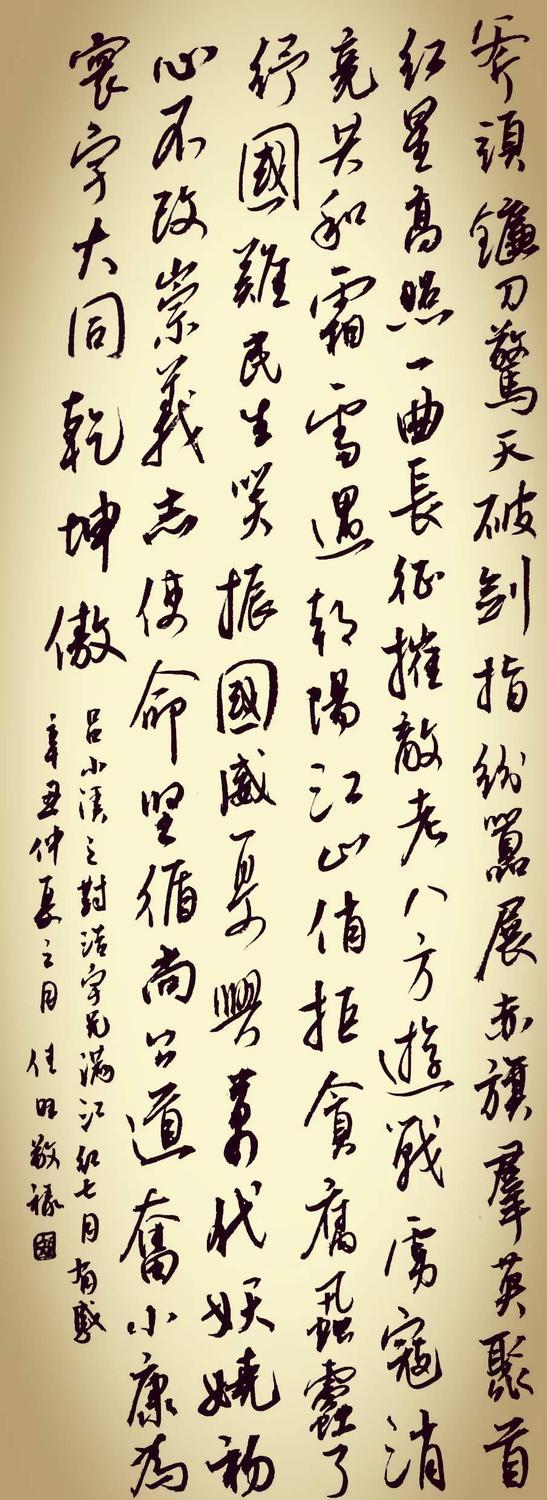 斧頭鐮刀驚天破劍指紛囂展赤旗羣英聚首
红星高照一曲長征摧敵老八方遊戰虜寇消
亮共和霜雪遇朝陽江山俏拒貪腐蟲蠹了
紓國難民生笑振國威夏興萬代妖嬈初
心不改崇義志使命堅循尚公道奮小康為
寰宇大同乾坤傲
吕小溪之對浩宇兄滿江红七月有感
辛丑仲夏之月佳旺敬